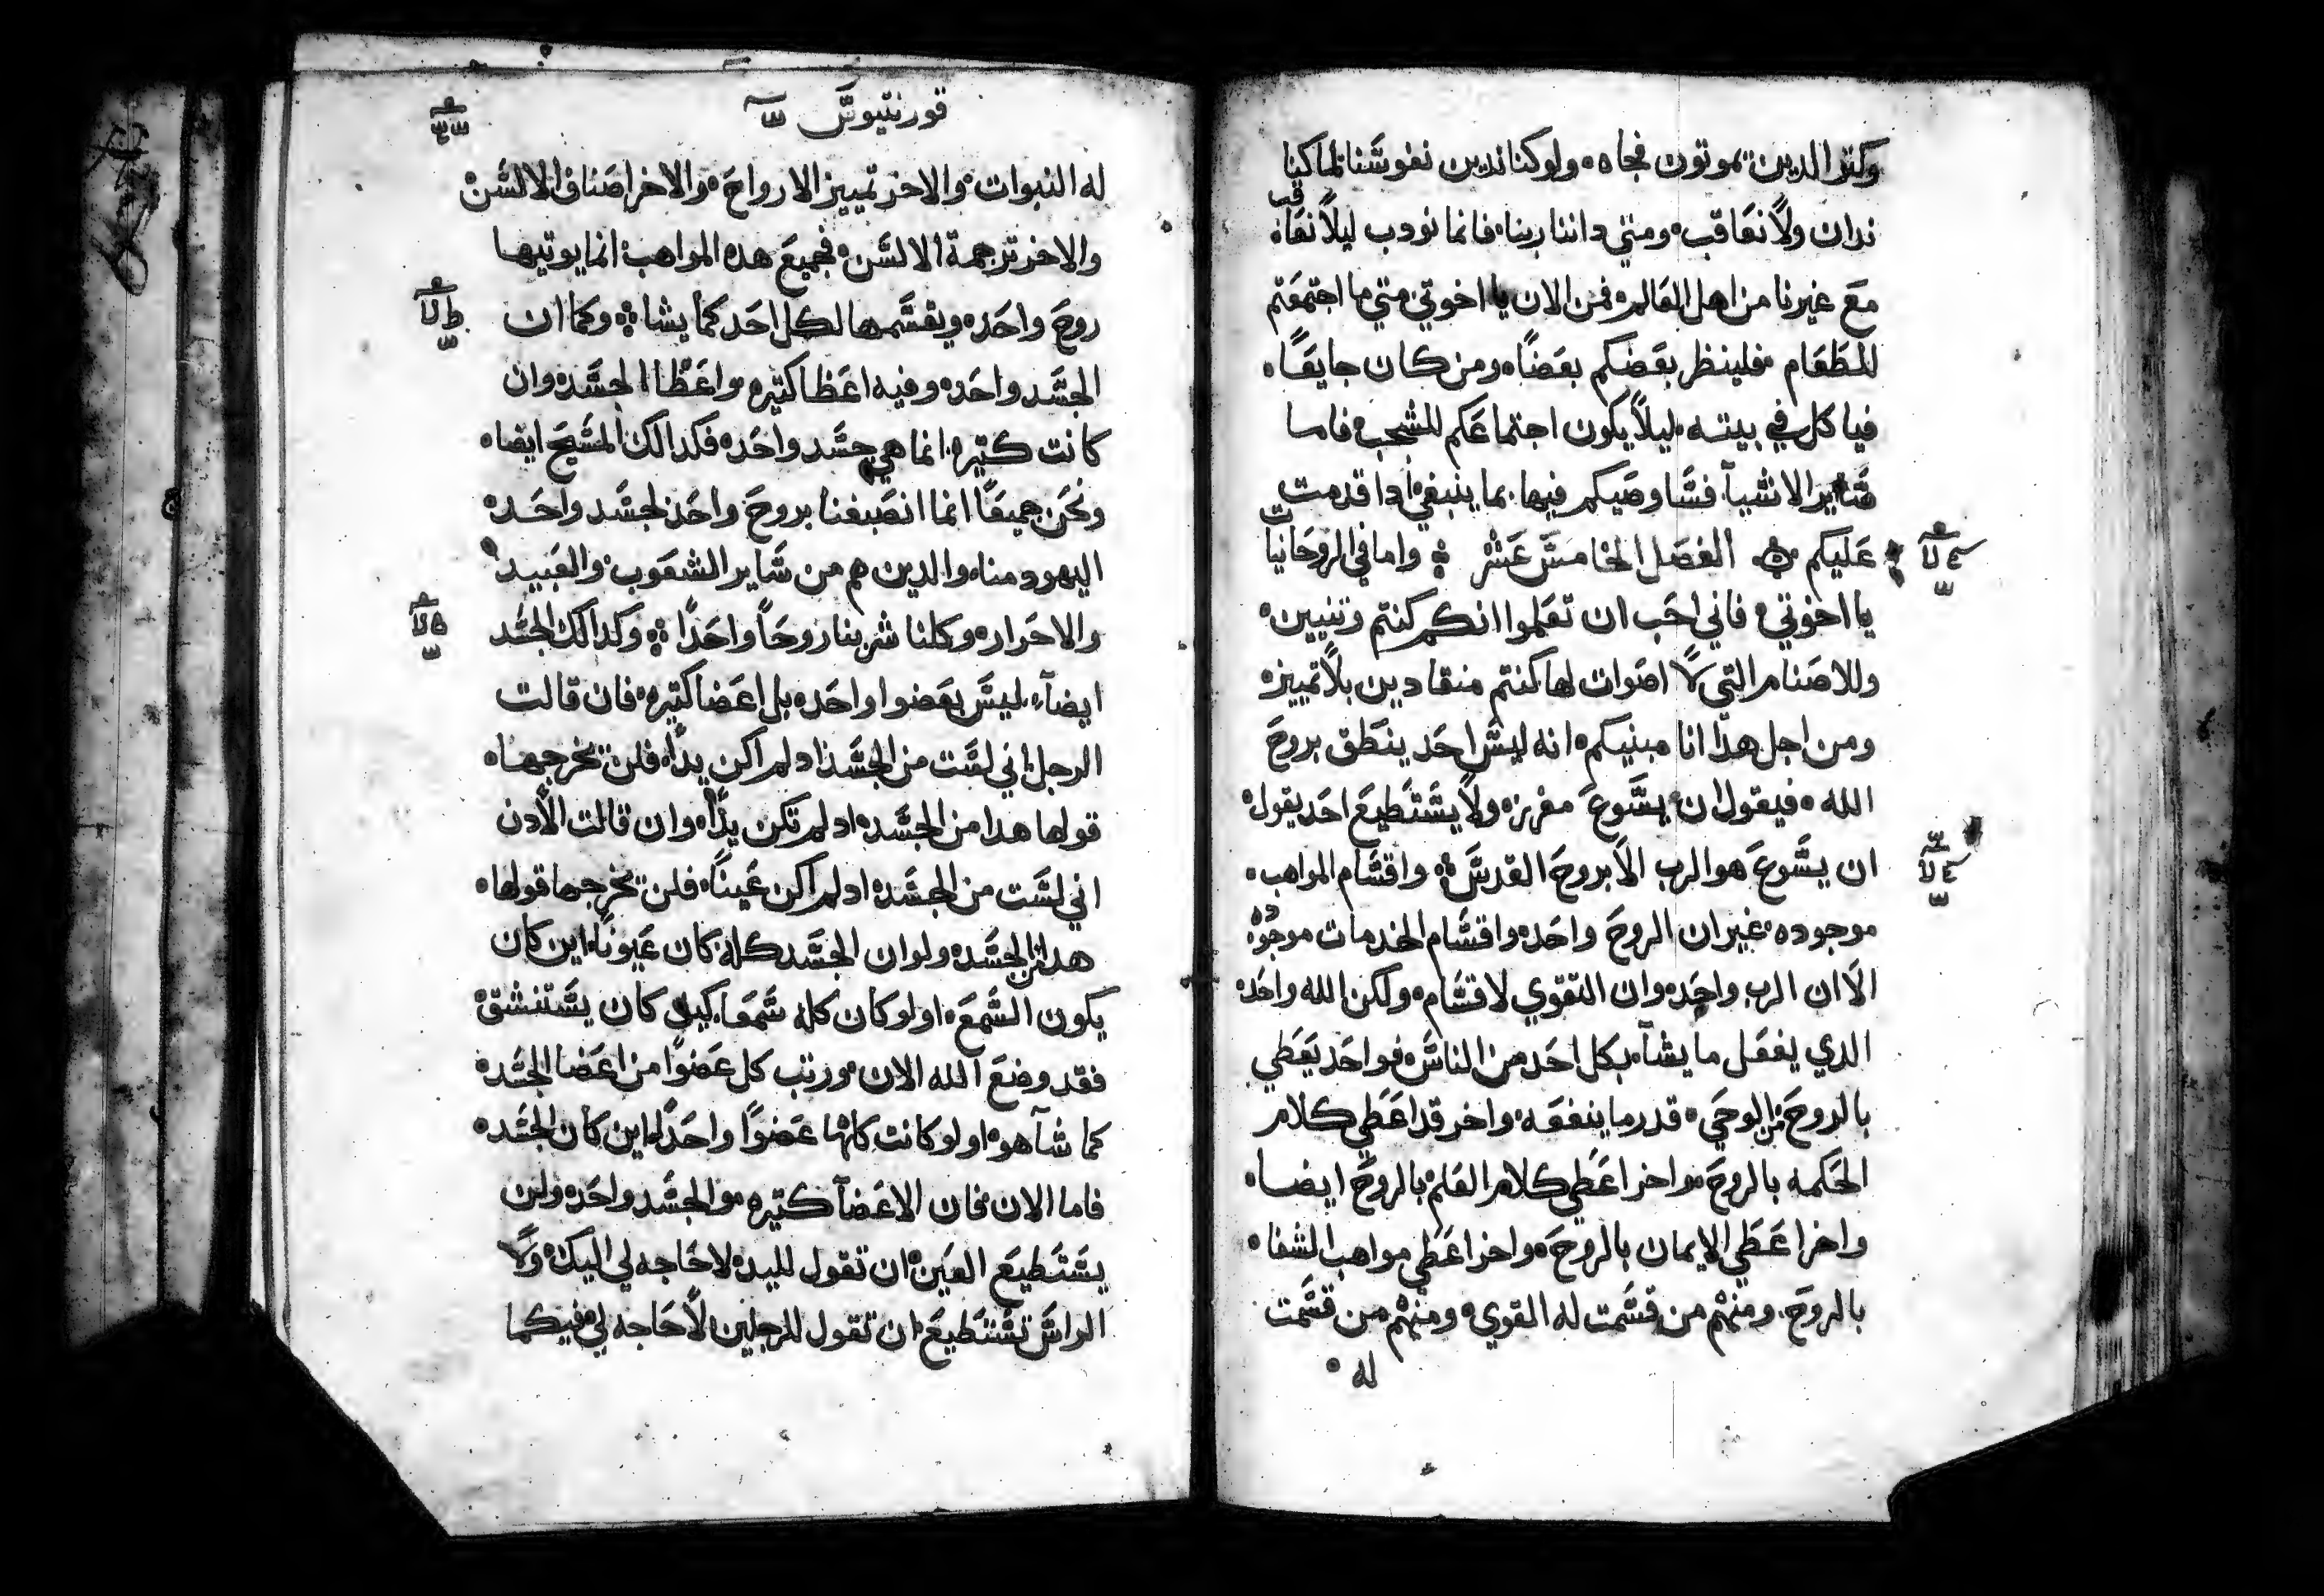 وكتر الدين يموتون فجاه ولو كنا ندين نفوسنا لما كنا
ندان ولا نعاقب ومتي داننا ربنا فانما نودب ليلا نعاقب
مع غيرنا من اهل العالم فمن الان يا اخوتي متي ما اجتمعتم
للطعام فلينظر بعضكم بعضا ومن كان جايعا
فياكل في بيته ليلا يكون اجتماعكم للشجب فاما
ساير الاشيا فساوصيكم فيها بما ينبغي ادا قدمت
عليكم الفصل الخامس عشر واما في الروحانيات
يا اخوتي فاني احب ان تعلموا انكم كنتم وتنيين
وللاصنام التي لا اصوات لها كنتم منقادين بلا تمييز
ومن اجل هدا انا مبنيكم انه ليس احد ينطق بروح
الله فيقول ان يسوع مفرز ولا يستطيع احد يقول
ان يسوع هو الرب الا بروح القدس واقسام المواهب
موجوده غير ان الروح واحد واقسام الخدمات موجوده
الا ان الرب واحد وان التقوي لاقسام ولكن الله واحد
الدي يفعل ما يشا بكل احد من الناس فواحد يعطي
بالروح من الوحي قدر ما ينفعه واخر قد اعطي كلام
الحكمه بالروح واخر اعطي كلام العلم بالروح ايضا
واخر اعطي الايمان بالروح واخر اعطي مواهب الشفا
بالروح ومنهم من قسمت له القوي ومنهم من قسمت
له
قورنتيوس
له النبوات والاخر تمييز الارواح والاخر اصناف الالسن
والاخر ترجمة الالسن فجميع هده المواهب انما يوتيها
روح واحد ويقسمها لكل احد كما يشا وكما ان
الجسد واحد وفيه اعظا كتيره واعظا الجسد وان
كانت كتيره انما هي جسد واحد فكدالك المسيح ايضا
ونحن جميعا انما انصبغنا بروح واحد لجسد واحد
اليهود منا والدين هم من ساير الشعوب والعبيد
والاحرار وكلنا شربنا روحا واحدا وكدالك الجسد
ايضا ليس بعضوا واحد بل اعضا كتيره فان قالت
الرجل اني لست من الجسد اد لم اكن يدا فلن تخرجها
قولها هدا من الجسد اد لم تكن يدا وان قالت الادن
اني لست من الجسد اد لم اكن عينا فلن تخرجها قولها
هدا من الجسد ولو ان الجسد كله كان عيونا اين كان
يكون السمع او لو كان كله سمعا كيف كان يستنشق
فقد وضع الله الان ورتب كل عضوا من اعضا الجسد
كما شا هو او لو كانت كلها عضوا واحدا اين كان الجسد
فاما الان فان الاعضا كتيره والجسد واحد ولن
يستطيع العين ان تقول لليد لا حاجه لي اليك ولا
الراس تستطيع ان تقول للرجلين لا حاجه لي فيكما